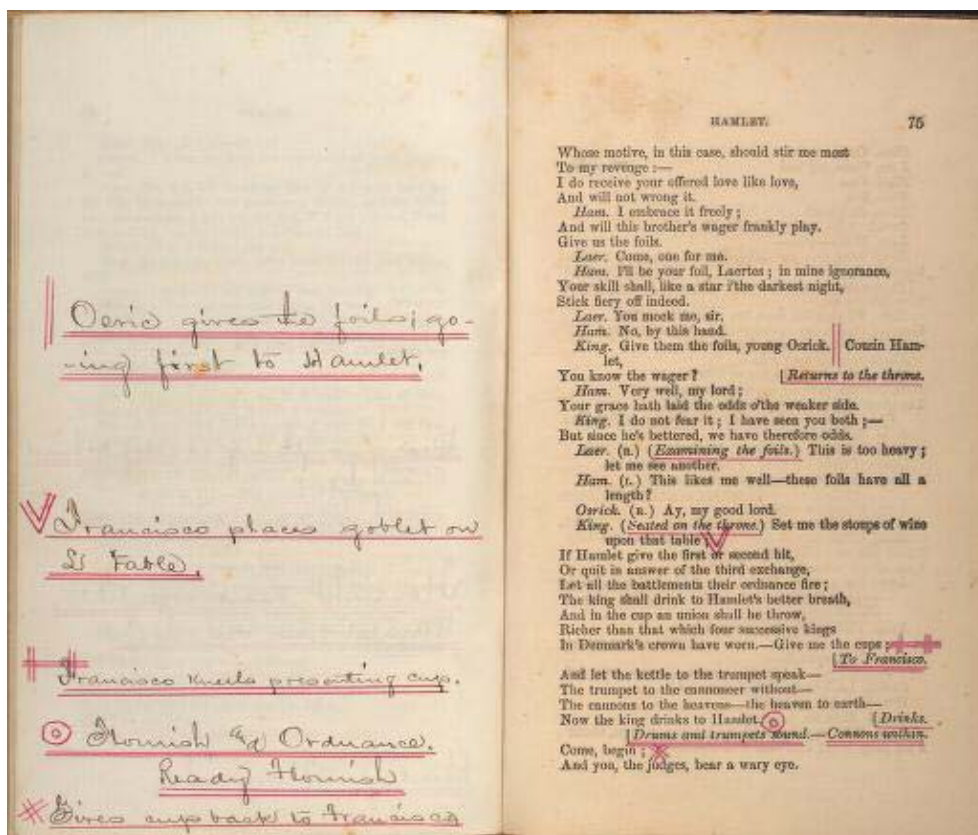 Osric gives the foils; go-
-ing first to Hamlet.
Francisco places goblet on
table.
Francisco kneels presenting cup.
Flourish and Ordnance.
Ready Flourish
Gives cup back to Francisco
HAMLET. 75
Whose motive, in this case, should stir me most
To my revenge:—
I do receive your offered love like love,
And will not wrong it.
Ham. I embrace it freely;
And will this brother's wager frankly play.
Give us the foils.
Laer. Come, one for me.
Ham. I'll be your foil, Laertes; in mine ignorance,
Your skill shall, like a star i'the darkest night,
Stick fiery off indeed.
Laer. You mock me, sir.
Ham. No, by this hand.
King. Give them the foils, young Osrick. Cousin Ham-
let,
You know the wager? [Returns to the throne.
Ham. Very well, my lord;
Your grace hath laid the odds o'the weaker side.
King. I do not fear it; I have seen you both;—
But since he's bettered, we have therefore odds.
Laer. (R.) (Examining the foils.) This is too heavy;
let me see another.
Ham. (L.) This likes me well—these foils have all a
length?
Osrick. (R.) Ay, my good lord.
King. (Seated on the throne.) Set me the stoups of wine
upon that table;
If Hamlet give the first or second hit,
Or quit in answer of the third exchange,
Let all the battlements their ordnance fire;
The king shall drink to Hamlet's better breath,
And in the cup an union shall he throw,
Richer than that which four successive kings
In Denmark's crown have worn.—Give me the cups;
[To Francisco.
And let the kettle to the trumpet speak—
The trumpet to the cannoneer without—
The cannons to the heavens—the heaven to earth—
Now the king drinks to Hamlet. [Drinks.
[Drums and trumpets sound.—Cannons within.
Come, begin;
And you, the judges, bear a wary eye.